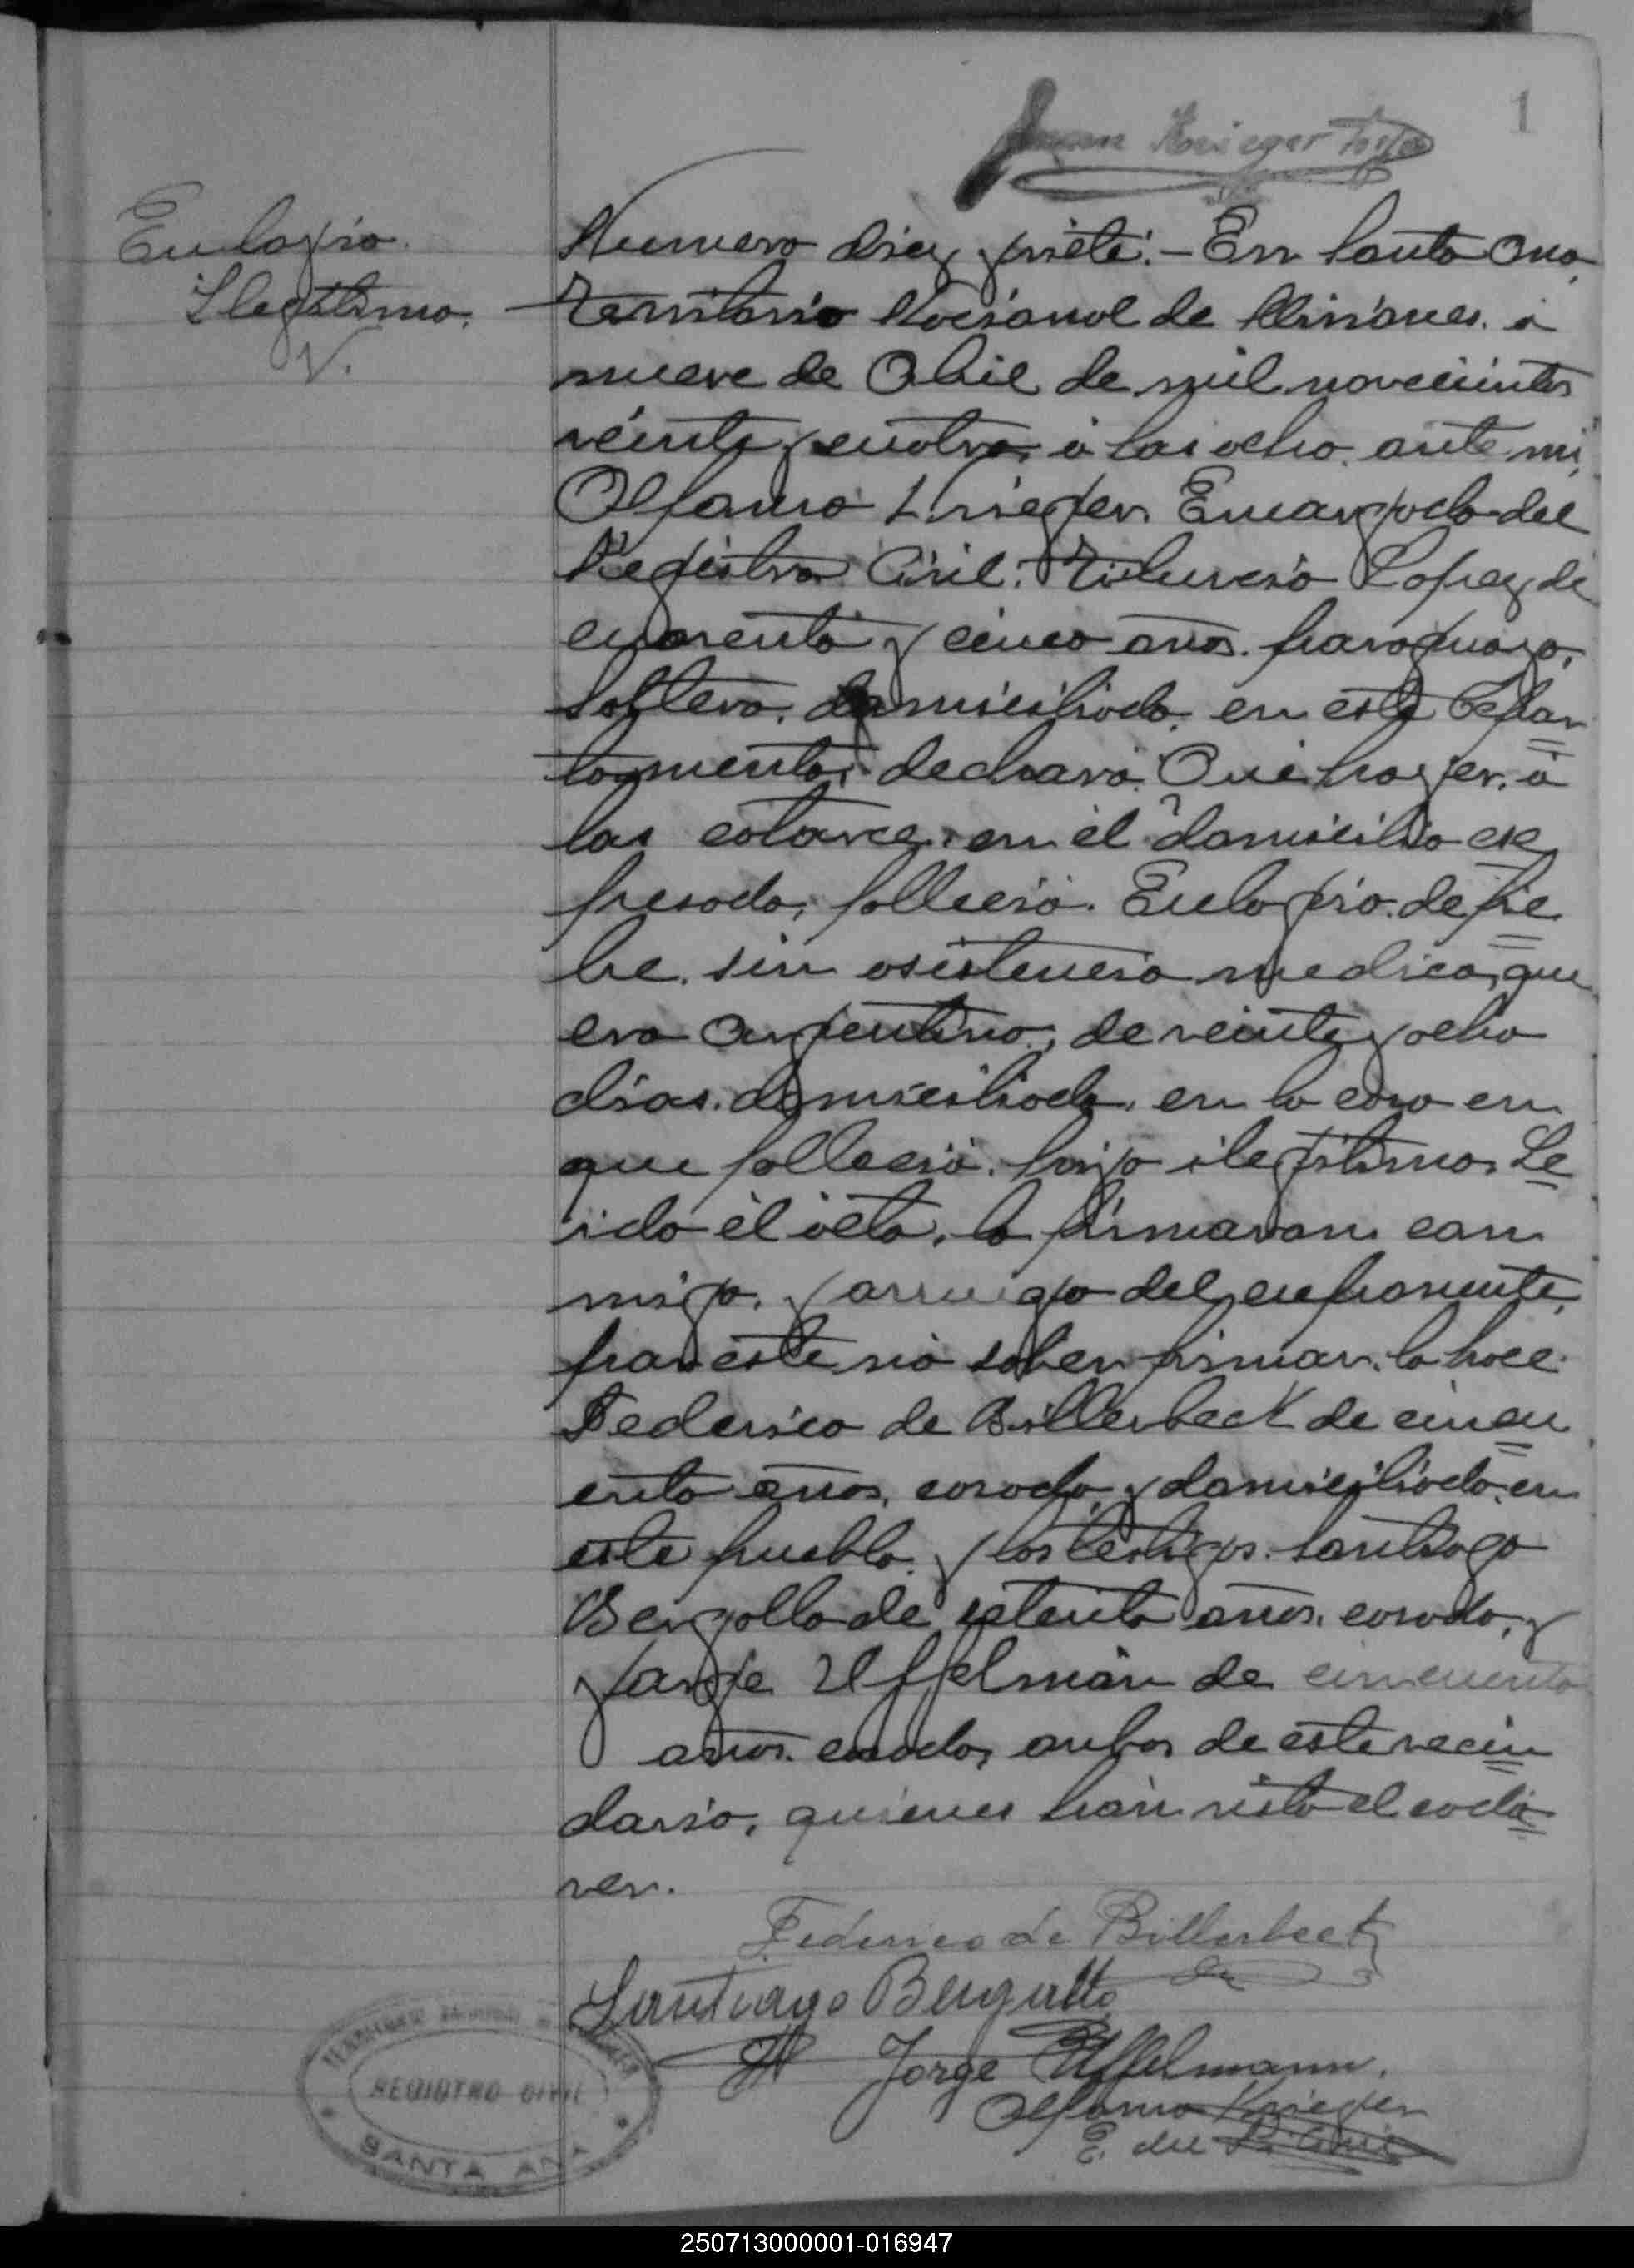 1
Juan Krieger
Eulogio.
Ilegitimo.
V.
Numero diez y siete.- En Santa Ana,
Territorio Nacional de Misiones, á
nueve de Abril de mil novecientos
veinte y cuatro, á las ocho, ante mi,
Alfonso Krieger, Encargado del
Registro Civil: Tiburcio Lopez de
cuarenta y cinco años, paraguayo,
soltero, domiciliado en este Depar
tamento, declaró: Que hayer, á
las catorce, en él domicilio ex
presado, falleció Eulogio de fie
bre, sin asistencia medica, que
era argentino, de veinte y ocho
días, domiciliado en la casa en
que falleció, hijo ilegitimo. Le
ida él acta, la firmaron con
migo, y a ruego del exponente,
por este nó saber firmar, lo hace
Federico de Billerbeck de cincu
enta años, casado, y domiciliado en
este pueblo, y los testigos Santiago
Bergallo de setenta años, casado, y
Jorge Uffelmán de cincuenta
años, casado, ambos de este vecin
dario, quienes hán visto el cadá
ver.
Federico de Billerbeck
Santiago Bergallo
Jorge Uffelmann.
Alfonso Krieger
E. del R. Civil
REGISTRO CIVIL
SANTA ANA
250713000001-016947